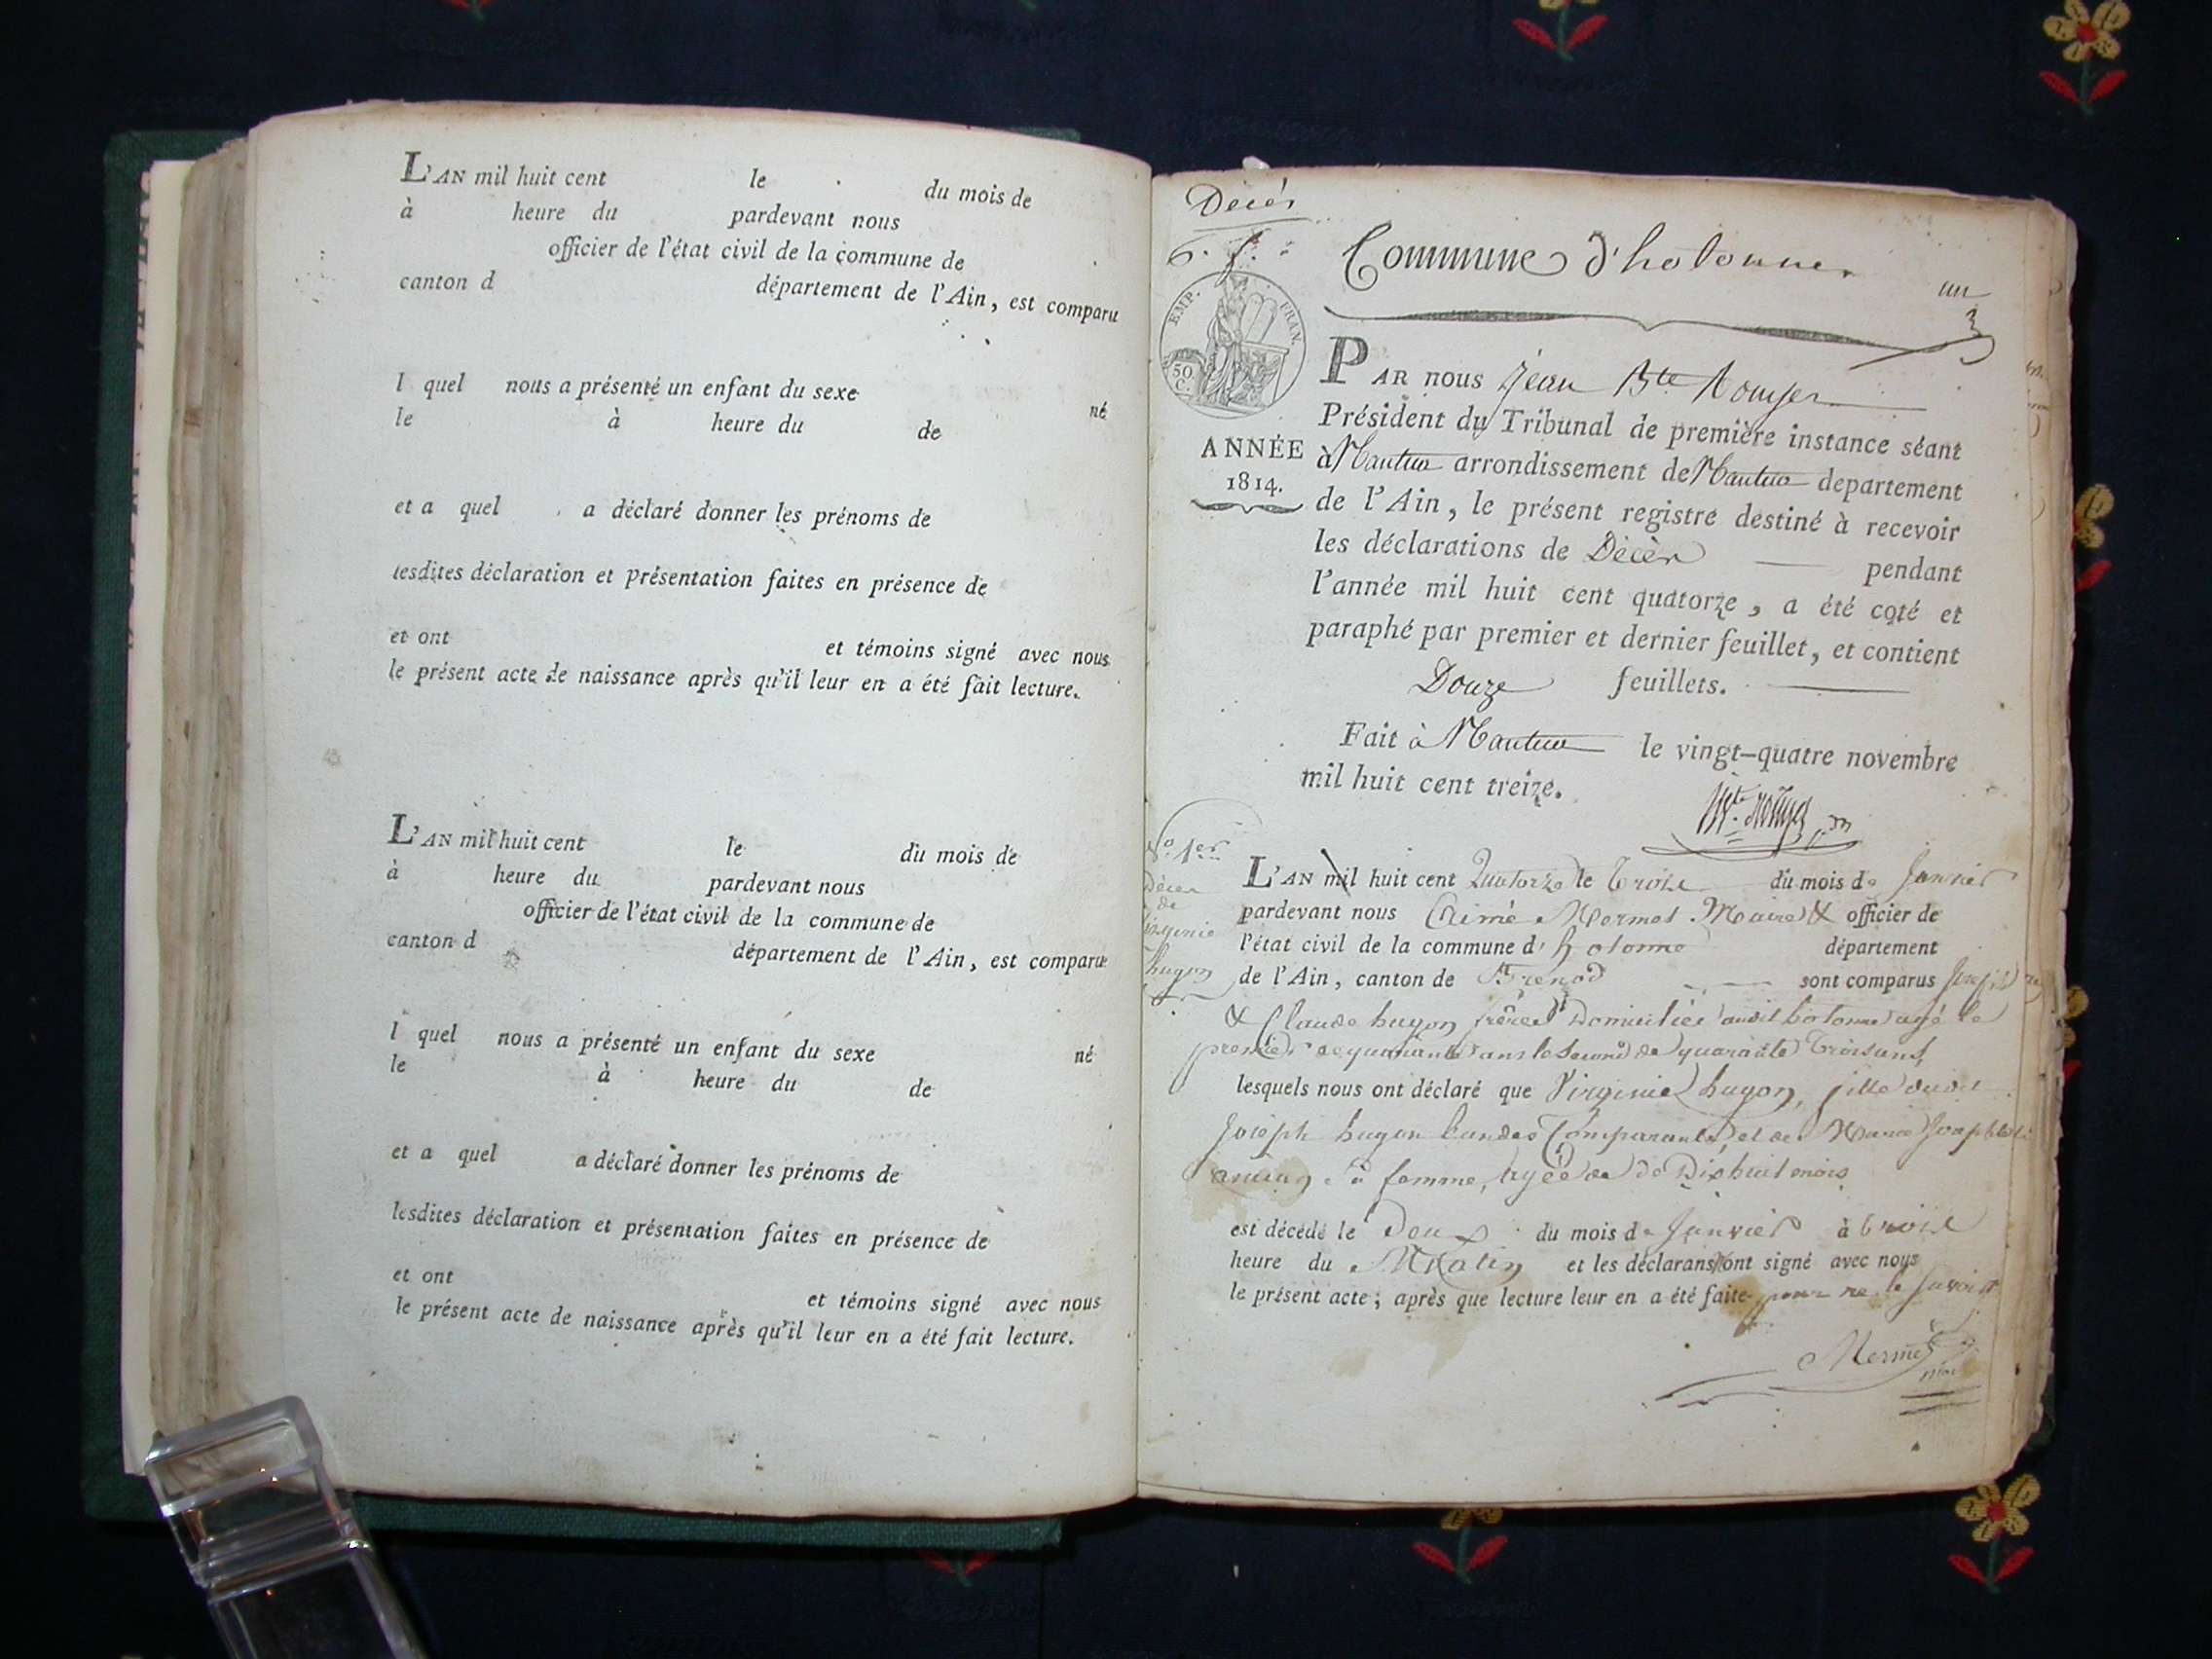 L'AN mil huit cent le du mois de
à heure du pardevant nous
officier de l'état civil de la commune de
canton d département de l'Ain, est comparu
l quel nous a présenté un enfant du sexe né
le à heure du de
et a quel a déclaré donner les prénoms de
lesdites déclaration et présentation faites en présence de
et ont et témoins signé avec nous
le présent acte de naissance après qu'il leur en a été fait lecture.
L'AN mil huit cent le du mois de
à heure du pardevant nous
officier de l'état civil de la commune de
canton d département de l'Ain, est comparu
l quel nous a présenté un enfant du sexe né
le à heure du de
et a quel a déclaré donner les prénoms de
lesdites déclaration et présentation faites en présence de
et ont et témoins signé avec nous
le présent acte de naissance après qu'il leur en a été fait lecture.
Décés
Commune d'hotonne
un
EMP. FRAN.
50 C.
PAR nous Jean Bte
Président du Tribunal de première instance séant
à Nantua arrondissement de Nantua departement
de l'Ain, le présent registre destiné à recevoir
les déclarations de Décès pendant
l'année mil huit cent quatorze, a été coté et
paraphé par premier et dernier feuillet, et contient
Douze feuillets.
ANNÉE
1814.
Fait à Nantua le vingt-quatre novembre
mil huit cent treize.
No 1er
Décès
de
Virginie
hugon
L'AN mil huit cent Quatorze le trois du mois de Janvier
pardevant nous Aimé Mermet Maire & officier de
l'état civil de la commune d' hotonne département
de l'Ain, canton de Brenod sont comparus Joseph
& Claude hugon frères Domiciliés audit hotonne agé le
premier de quarante ans le second de quarante trois ans,
lesquels nous ont déclaré que Virginie hugon, fille dudit
Joseph hugon l'un des Comparants, et de Marie Josephte
sa femme, agée de Dix huit mois
est décédé le Deux du mois de Janvier à trois
heure du Matin et les déclarans n'ont signé avec nous
le présent acte; après que lecture leur en a été faite pour ne le savoir
Mermet